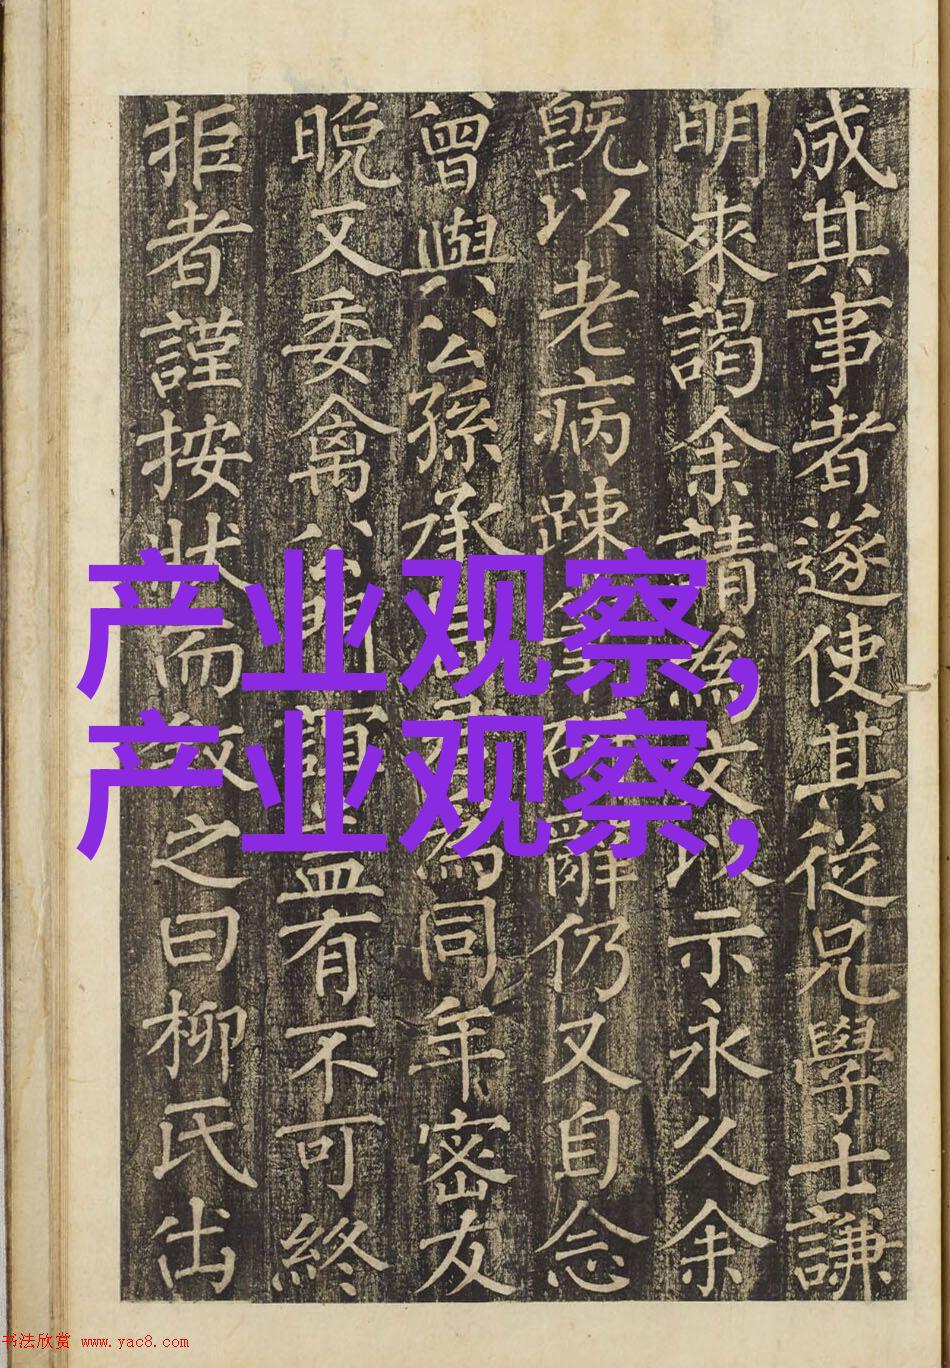 成其事者遂使其從兄學士謙
明來謁余請為文以示永久余
既以老病踈硯辭仍又自念
曾與公孫承為同年密友
晚又委禽公門誼盖有不可終
拒者謹按狀而敘之曰柳氏出
产业观察,
产业观察,
书法欣赏 www.yac8.com